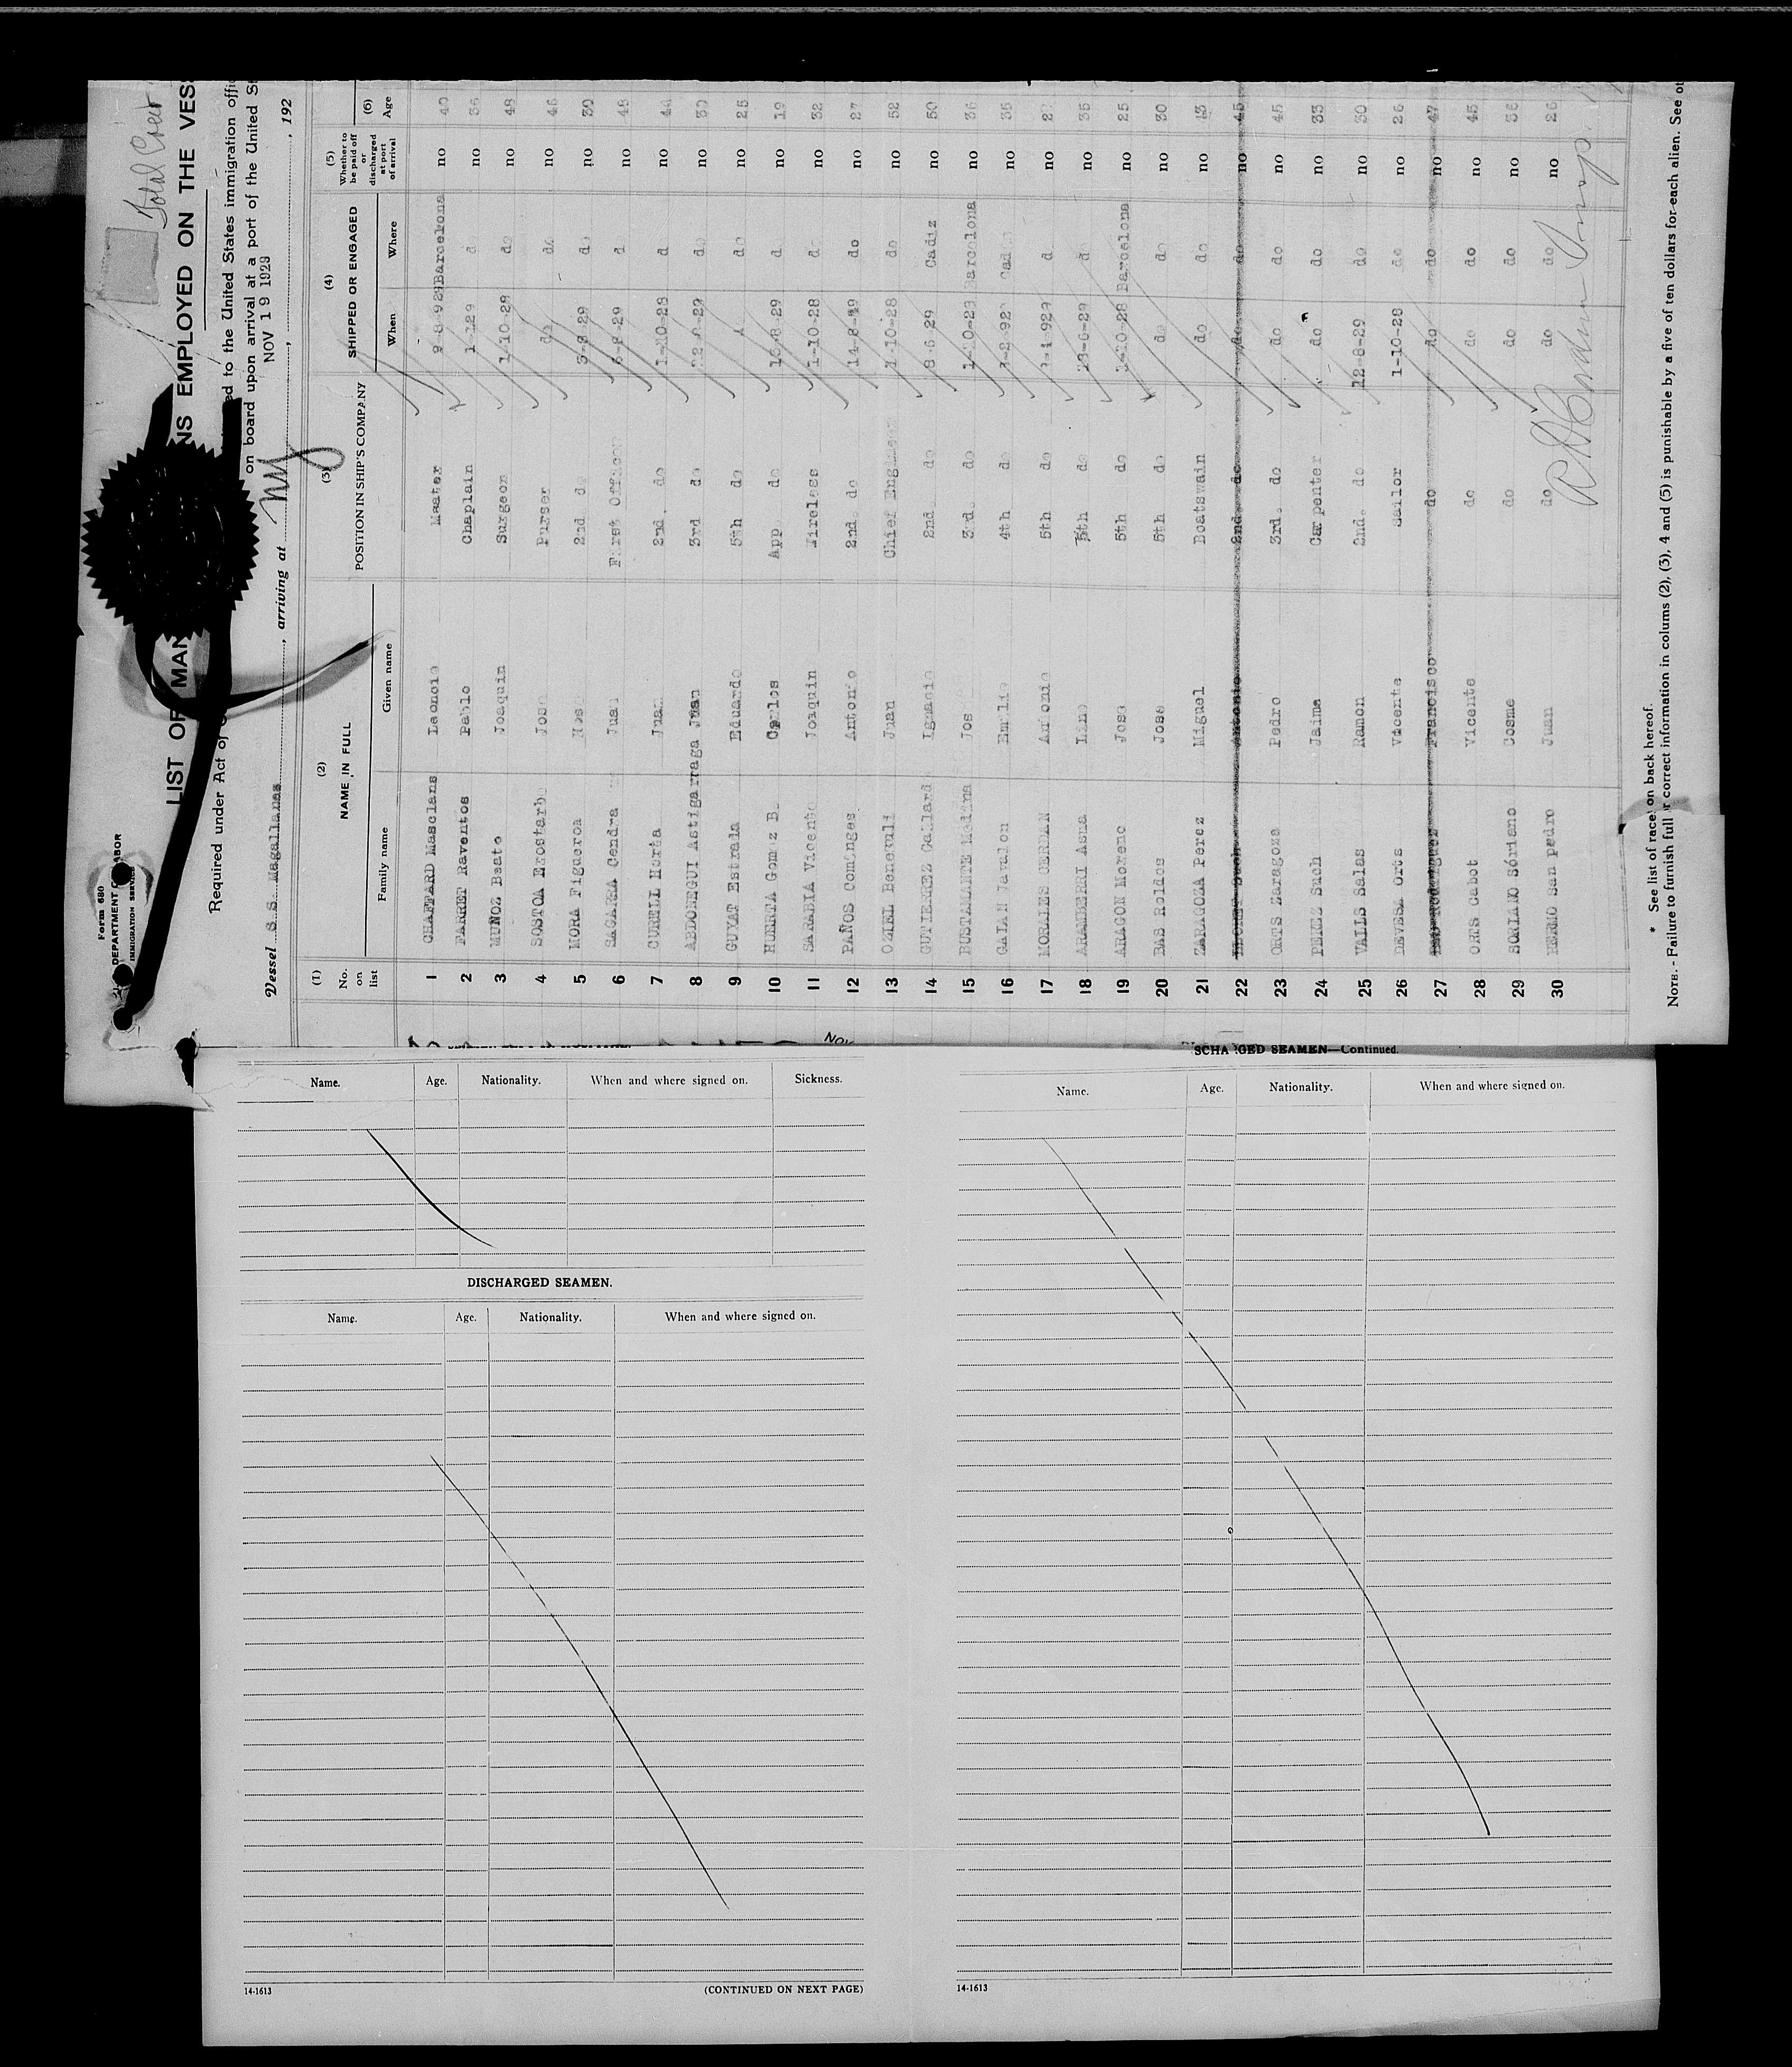 Form 680
DEPARTMENT LABOR
IMMIGRATION SERVICE
Total Crew
LIST OF MAN NS EMPLOYED ON THE VES
Required under Act of ed to the United States immigration offi
on board upon arrival at a port of the United St
Vessel S.S. Magallanes, arriving at NY NOV 19 1929, 192
(1) (2) (3) (4) (5) (6)
No. on list NAME IN FULL POSITION IN SHIP'S COMPANY SHIPPED OR ENGAGED Whether to be paid off or discharged at port of arrival Age
Family name Given name When Where
1 CHAFFARD Masclans Leoncio Master Barcelona no 40
2 FARRET Raventos Pablo Chaplain no 36
3 MUÑOZ Basato Joaquin Surgeon 1-10-28 do no 48
4 SOSTOA Jose Purser do no 46
5 MORA Figueroa 2nd do 5-8-29 do no 30
6 SAGARRA Cendra Juan First Officer 6-8-29 no 48
7 CURELL Horta Juan 2nd. do 1-10-28 no 44
8 ABDONEGUI Astigarraga Juan 3rd do do no 30
9 GUYAT Estrada Eduardo 5th do do no 25
10 HUERTA Gomez B. Carlos App do no 19
11 SARABIA Vicente Joaquin Wireless 1-10-28 do no 32
12 PAÑOS Cominges Antonio 2nd. do do no 27
13 Juan Chief Engineer 1-10-28 do no 52
14 GUTIERREZ Gallardo Ignacio 2nd. do 8-6-29 Cadiz no 50
15 BUSTAMANTE Medina Jos 3rd. do 1-10-28 Barcelona no 36
16 GALAN Javalon Emilio 4th do Cadiz no 35
17 MORALES CERDAN Antonio 5th do no
18 ARAMBERRI Asua Lino 5th do no 35
19 ARAGON Moreno Jose 5th do 1-10-28 Barcelona no 25
20 BAS Roldos Jose 5th do do do no 30
21 ZARAGOZA Perez Miguel Boatswain do do no
22 Antonio 2nd do do do no 45
23 ORTS Zaragoza Pedro 3rd. do do do no 45
24 PEREZ Such Jaime Carpenter do do no 33
25 VALLS Salas Ramon 2nd. do 12-8-29 do no 30
26 DEVESA Orts Vicente Sailor 1-10-28 do no 26
27 Francisco do do do no 47
28 ORTS Gabot Vicente do do do no 45
29 SORIANO Sóriano Cosme do do do no 36
30 San pedro Juan do do do no 26
* See list of races on back hereof.
NOTE. - Failure to furnish full r correct information in colums (2), (3), 4 and (5) is punishable by a five of ten dollars for each alien. See ot
Name. Age. Nationality. When and where signed on. Sickness.
DISCHARGED SEAMEN.
Name. Age. Nationality. When and where signed on.
14-1613
(CONTINUED ON NEXT PAGE)
SCHA GED SEAMEN—Continued.
Name. Age. Nationality. When and where signed on.
14-1613